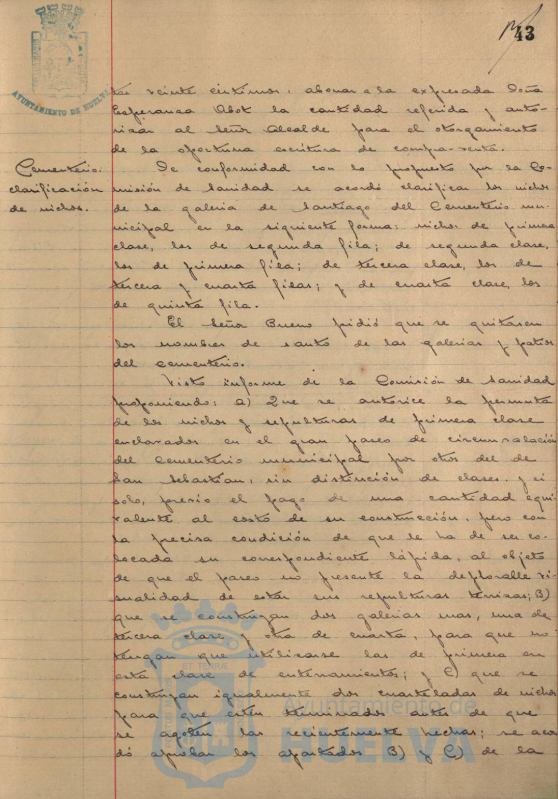 43
AYUNTAMIENTO DE HUELVA
tas veinte céntimos, abonar a la expresada Doña
Esperanza Abot la cantidad referida y auto-
rizar al Señor Alcalde para el otorgamiento
de la oportuna escritura de compra-venta.
Cementerio:
clarificación
de nichos.
De conformidad con lo propuesto por la Co-
misión de Sanidad se acordó clarificar los nichos
de la galería de Santiago del Cementerio mu-
nicipal en la siguiente forma: nichos de primera
clase, los de segunda fila; de segunda clase,
los de primera fila; de tercera clase, los de
tercera y cuarta filas; y de cuarta clase, los
de quinta fila.
El Señor Bueno pidió que se quitasen
los nombres de santo de las galerías y patios
del cementerio.
Visto informe de la Comisión de Sanidad
proponiendo: a) Que se autorice la permuta
de los nichos y sepulturas de primera clase
enclavados en el gran paseo de circunvalación
del Cementerio municipal por otros del de
San Sebastián, sin distinción de clases, y
solo, previo el pago de una cantidad equi-
valente al costo de su construcción, pero con
la precisa condición de que se ha de ser co-
locada su correspondiente lápida, al objeto
de que el paseo no presente la deplorable vi-
sualidad de estar sus sepulturas terrizas; B)
que se construyan dos galerías mas, una de
tercera clase y otra de cuarta, para que no
tengan que utilizarse las de primera en
esta clase de enterramientos; y C) que se
construyan igualmente dos cuarteladas de nichos
para que estén terminados antes de que
se agoten las recientemente hechas; se acor-
dó aprobar los apartados B) y C) de la
Ayuntamiento de
HUELVA